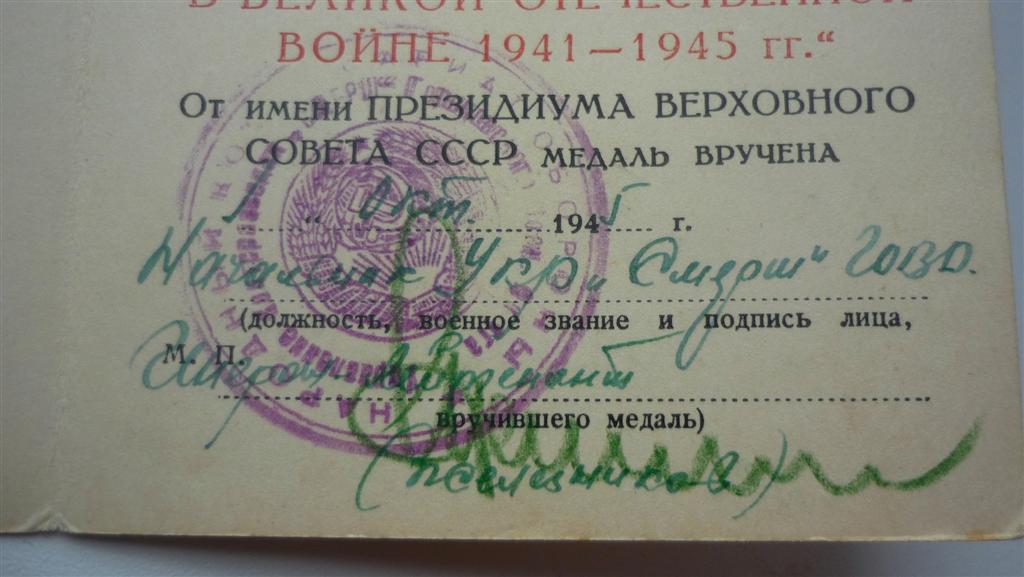 В ВЕЛИКОЙ ОТЕЧЕСТВЕННОЙ
ВОЙНЕ 1941—1945 гг.“
От имени ПРЕЗИДИУМА ВЕРХОВНОГО
СОВЕТА СССР МЕДАЛЬ ВРУЧЕНА
1 " Окт. 1945 г.
Начальник Укр „Смерш" ГСВГ
(должность, военное звание и подпись лица,
М. П. Генерал-лейтенант
вручившего медаль)